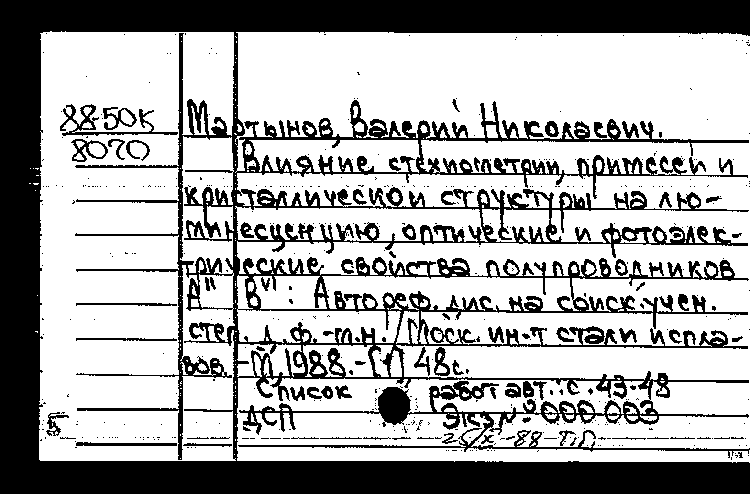 88-50К
8070
Мартынов, Валерий Николаевич.
Влияние стехиометрии, примесей и
кристаллической структуры на лю-
минесценцию, оптические и фотоэлек-
трические свойства полупроводников
A" B^VI : Автореф. дис. на соиск. учен.
степ. д. ф.-м.н. / Моск. ин-т стали и спла-
вов. - М, 1988. - [1] 48с.
Список работ авт.: с. 43-48
ДСП Экз № 000 003
5
25/X-88